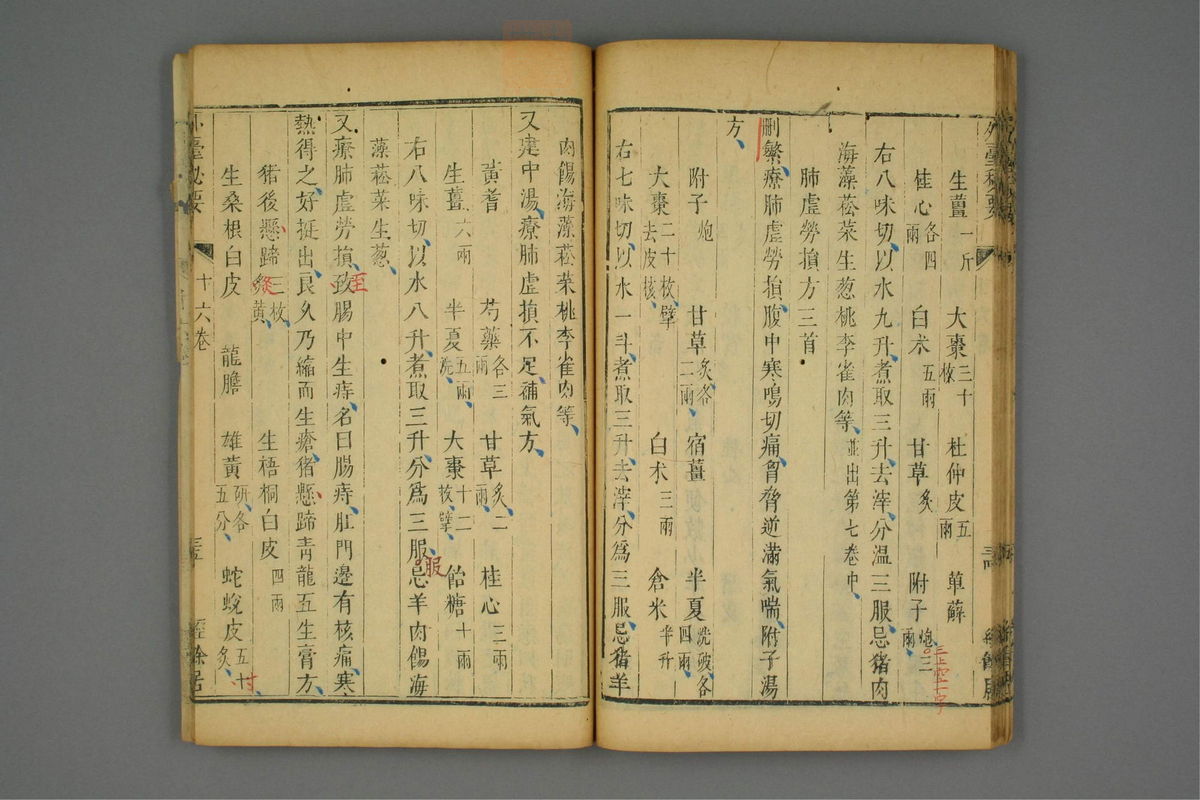 外臺秘要
生薑一斤 大棗三十枚 杜仲皮五兩 萆薢
桂心各四兩 白朮五兩 甘草炙 附子炮三兩
右八味切以水九升煮取三升去滓分溫三服忌猪肉
海藻菘菜生葱桃李雀肉等並出第七卷中
肺虛勞損方三首
刪繁療肺虛勞損腹中寒鳴切痛胷脅逆滿氣喘附子湯
方
附子炮 甘草炙各二兩 宿薑 半夏洗破各四兩
大棗二十枚擘去皮核 白朮三兩 倉米半升
右七味切以水一斗煮取三升去滓分爲三服忌猪羊
肉餳海藻菘菜桃李雀肉等
又建中湯療肺虛損不足補氣方
黃耆 芍藥各三兩 甘草炙二兩 桂心三兩
生薑六兩 半夏五兩洗 大棗十二枚擘 飴糖十兩
右八味切以水八升煮取三升分爲三服忌羊肉餳海
服
藻菘菜生葱
又療肺虛勞損致腸中生痔名曰腸痔肛門邊有核痛寒
至
熱得之好挺出良久乃縮而生瘡猪懸蹄靑龍五生膏方
猪後懸蹄三枚炙黃 生梧桐白皮四兩
生桑根白皮 龍膽 雄黃研各五分 蛇蛻皮五十炙
外臺秘要 十六卷 經餘居